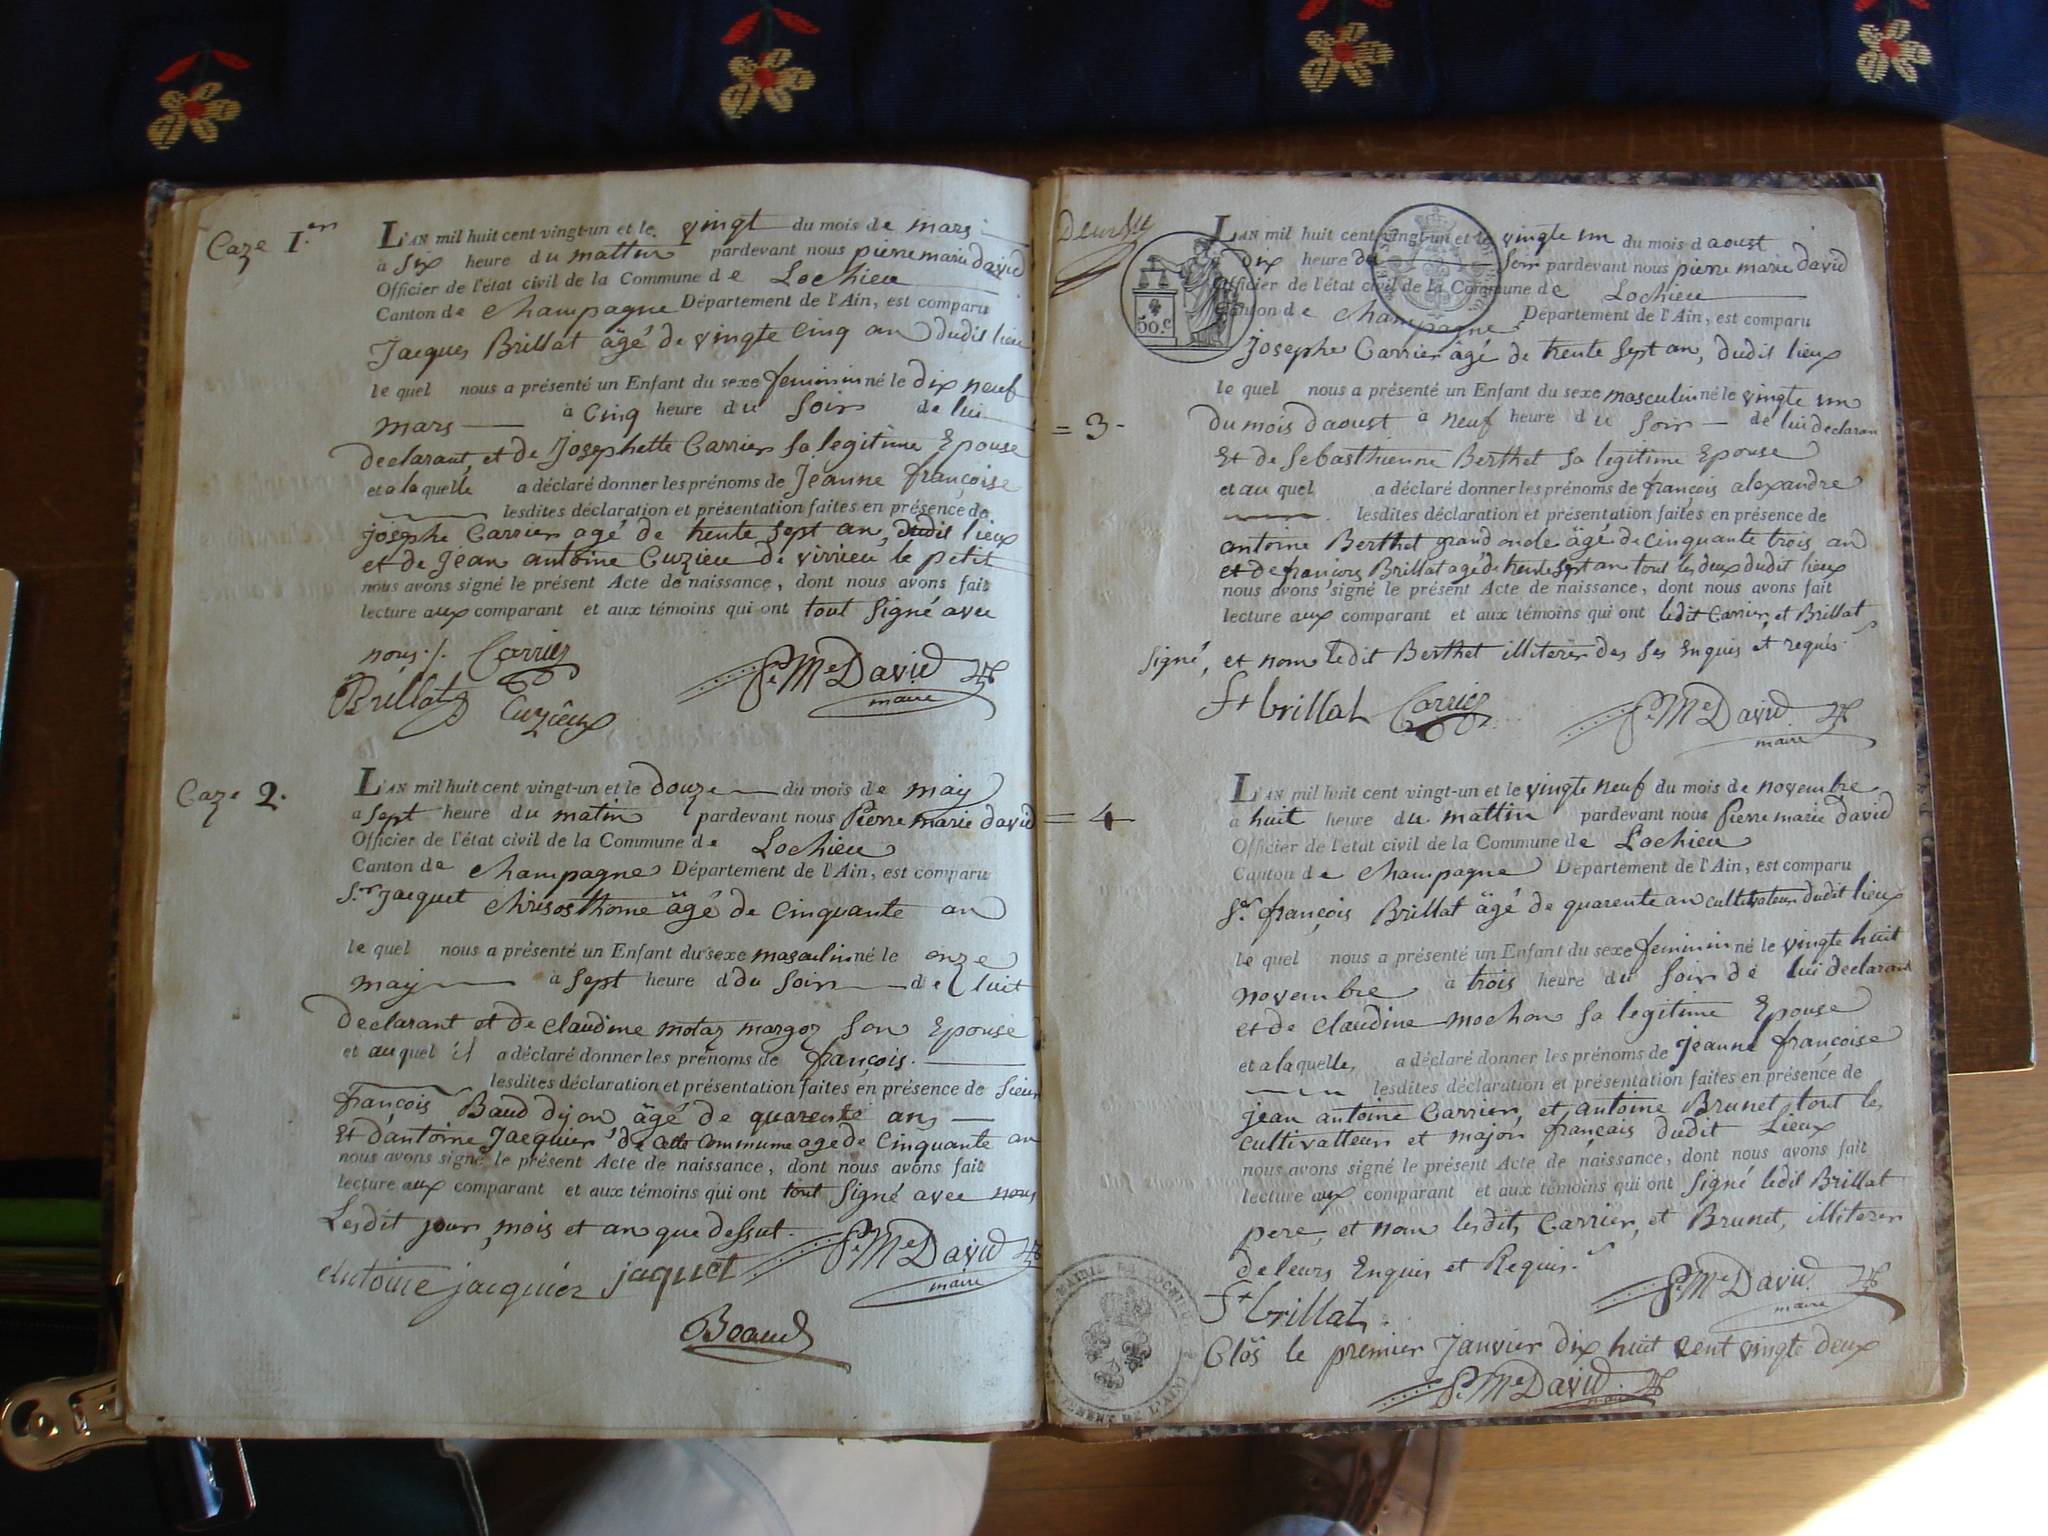 Caze 1.er
L'AN mil huit cent vingt-un et le vingt du mois de mars
a six heure du mattin pardevant nous pierre marie david
Officier de l'état civil de la Commune de Lochieu
Canton de Champagne Département de l'Ain, est comparu
Jacques Brillat âgé de vingte cinq an dudit lieu
le quel nous a présenté un Enfant du sexe feminin né le dix neuf
mars à cinq heure du soir de lui
declarant, et de Josephette Carrier sa legitime Epouse
et a laquelle a déclaré donner les prénoms de Jeanne françoise
lesdites déclaration et présentation faites en présence de
josephe Carrier agé de trente sept an, dudit lieux
et de Jean antoine Cuzieu de virrieu le petit
nous avons signé le présent Acte de naissance, dont nous avons fait
lecture aux comparant et aux témoins qui ont tout signé avec
nous ./. Carrier
Brillat Cuzieux P.e M.e David maire
Caze 2.
L'AN mil huit cent vingt-un et le douze du mois de may
a sept heure du matin pardevant nous Pierre marie david
Officier de l'état civil de la Commune de Lochieu
Canton de Champagne Département de l'Ain, est comparu
S.r Jacquet Chrisosthome âgé de cinquante an
le quel nous a présenté un Enfant du sexe masculin né le onze
may à sept heure d du soir de luit
declarant et de claudine motaz margoz son Epouse
et auquel il a déclaré donner les prénoms de françois.
lesdites déclaration et présentation faites en présence de sieur
françois Baud dijon âgé de quarente ans
Et dantoine Jacquier de cette Commune age de cinquante an
nous avons signé le présent Acte de naissance, dont nous avons fait
lecture aux comparant et aux témoins qui ont tout signé avec nous
Lesdit jour, mois et an que dessut. P.e M.e David
antoine jacquier jaquet maire
Beaud
50.c
L'AN mil huit cent vingt-un et le vingte un du mois d aoust
dix heure du soir pardevant nous pierre marie david
Officier de l'état civil de la Commune de Lochieu
Canton de Champagne Département de l'Ain, est comparu
Josephe Carrier âgé de trente sept an, dudit lieux
le quel nous a présenté un Enfant du sexe masculin né le vingte un
= 3 -
du mois daoust à neuf heure du soir de lui declaran
Et de Sebasthienne Berthet sa legitime Epouse
et au quel a déclaré donner les prénoms de françois alexandre
lesdites déclaration et présentation faites en présence de
antoine Berthet grand oncle âgé de cinquante trois an
et de françois Brillat agé de trente sept an tout les deux dudit lieux
nous avons signé le présent Acte de naissance, dont nous avons fait
lecture aux comparant et aux témoins qui ont ledit Carrier, et Brillat
signé, et nom ledit Berthet illiterer des ses Enquis et requis
f.s brillat Carrier P.e M.e David
maire
= 4
L'AN mil huit cent vingt-un et le vingte neuf du mois de novembre
a huit heure du mattin pardevant nous Pierre marie david
Officier de l'état civil de la Commune de Lochieu
Canton de Champagne Département de l'Ain, est comparu
S.r françois Brillat âgé de quarente an cultivateur dudit lieux
le quel nous a présenté un Enfant du sexe feminin né le vingte huit
novembre à trois heure du soir de lui declarant
et de claudine mochon sa legitime Epouse
et a laquelle a déclaré donner les prénoms de Jeanne françoise
lesdites déclaration et présentation faites en présence de
jean antoine Carrier, et antoine Brunet, tout les
cultivatteur et major français dudit Lieux
nous avons signé le présent Acte de naissance, dont nous avons fait
lecture aux comparant et aux témoins qui ont signé ledit Brillat
pere, et nom lesdits Carrier, et Brunet, illiterer
de leurs Enquis et Requis.
f.s brillat P.e M.e David
maire
Clôs le premier Janvier dix huit cent vingte deux
P.e M.e David maire
MAIRIE DE LOCHIEU
DE L'AIN